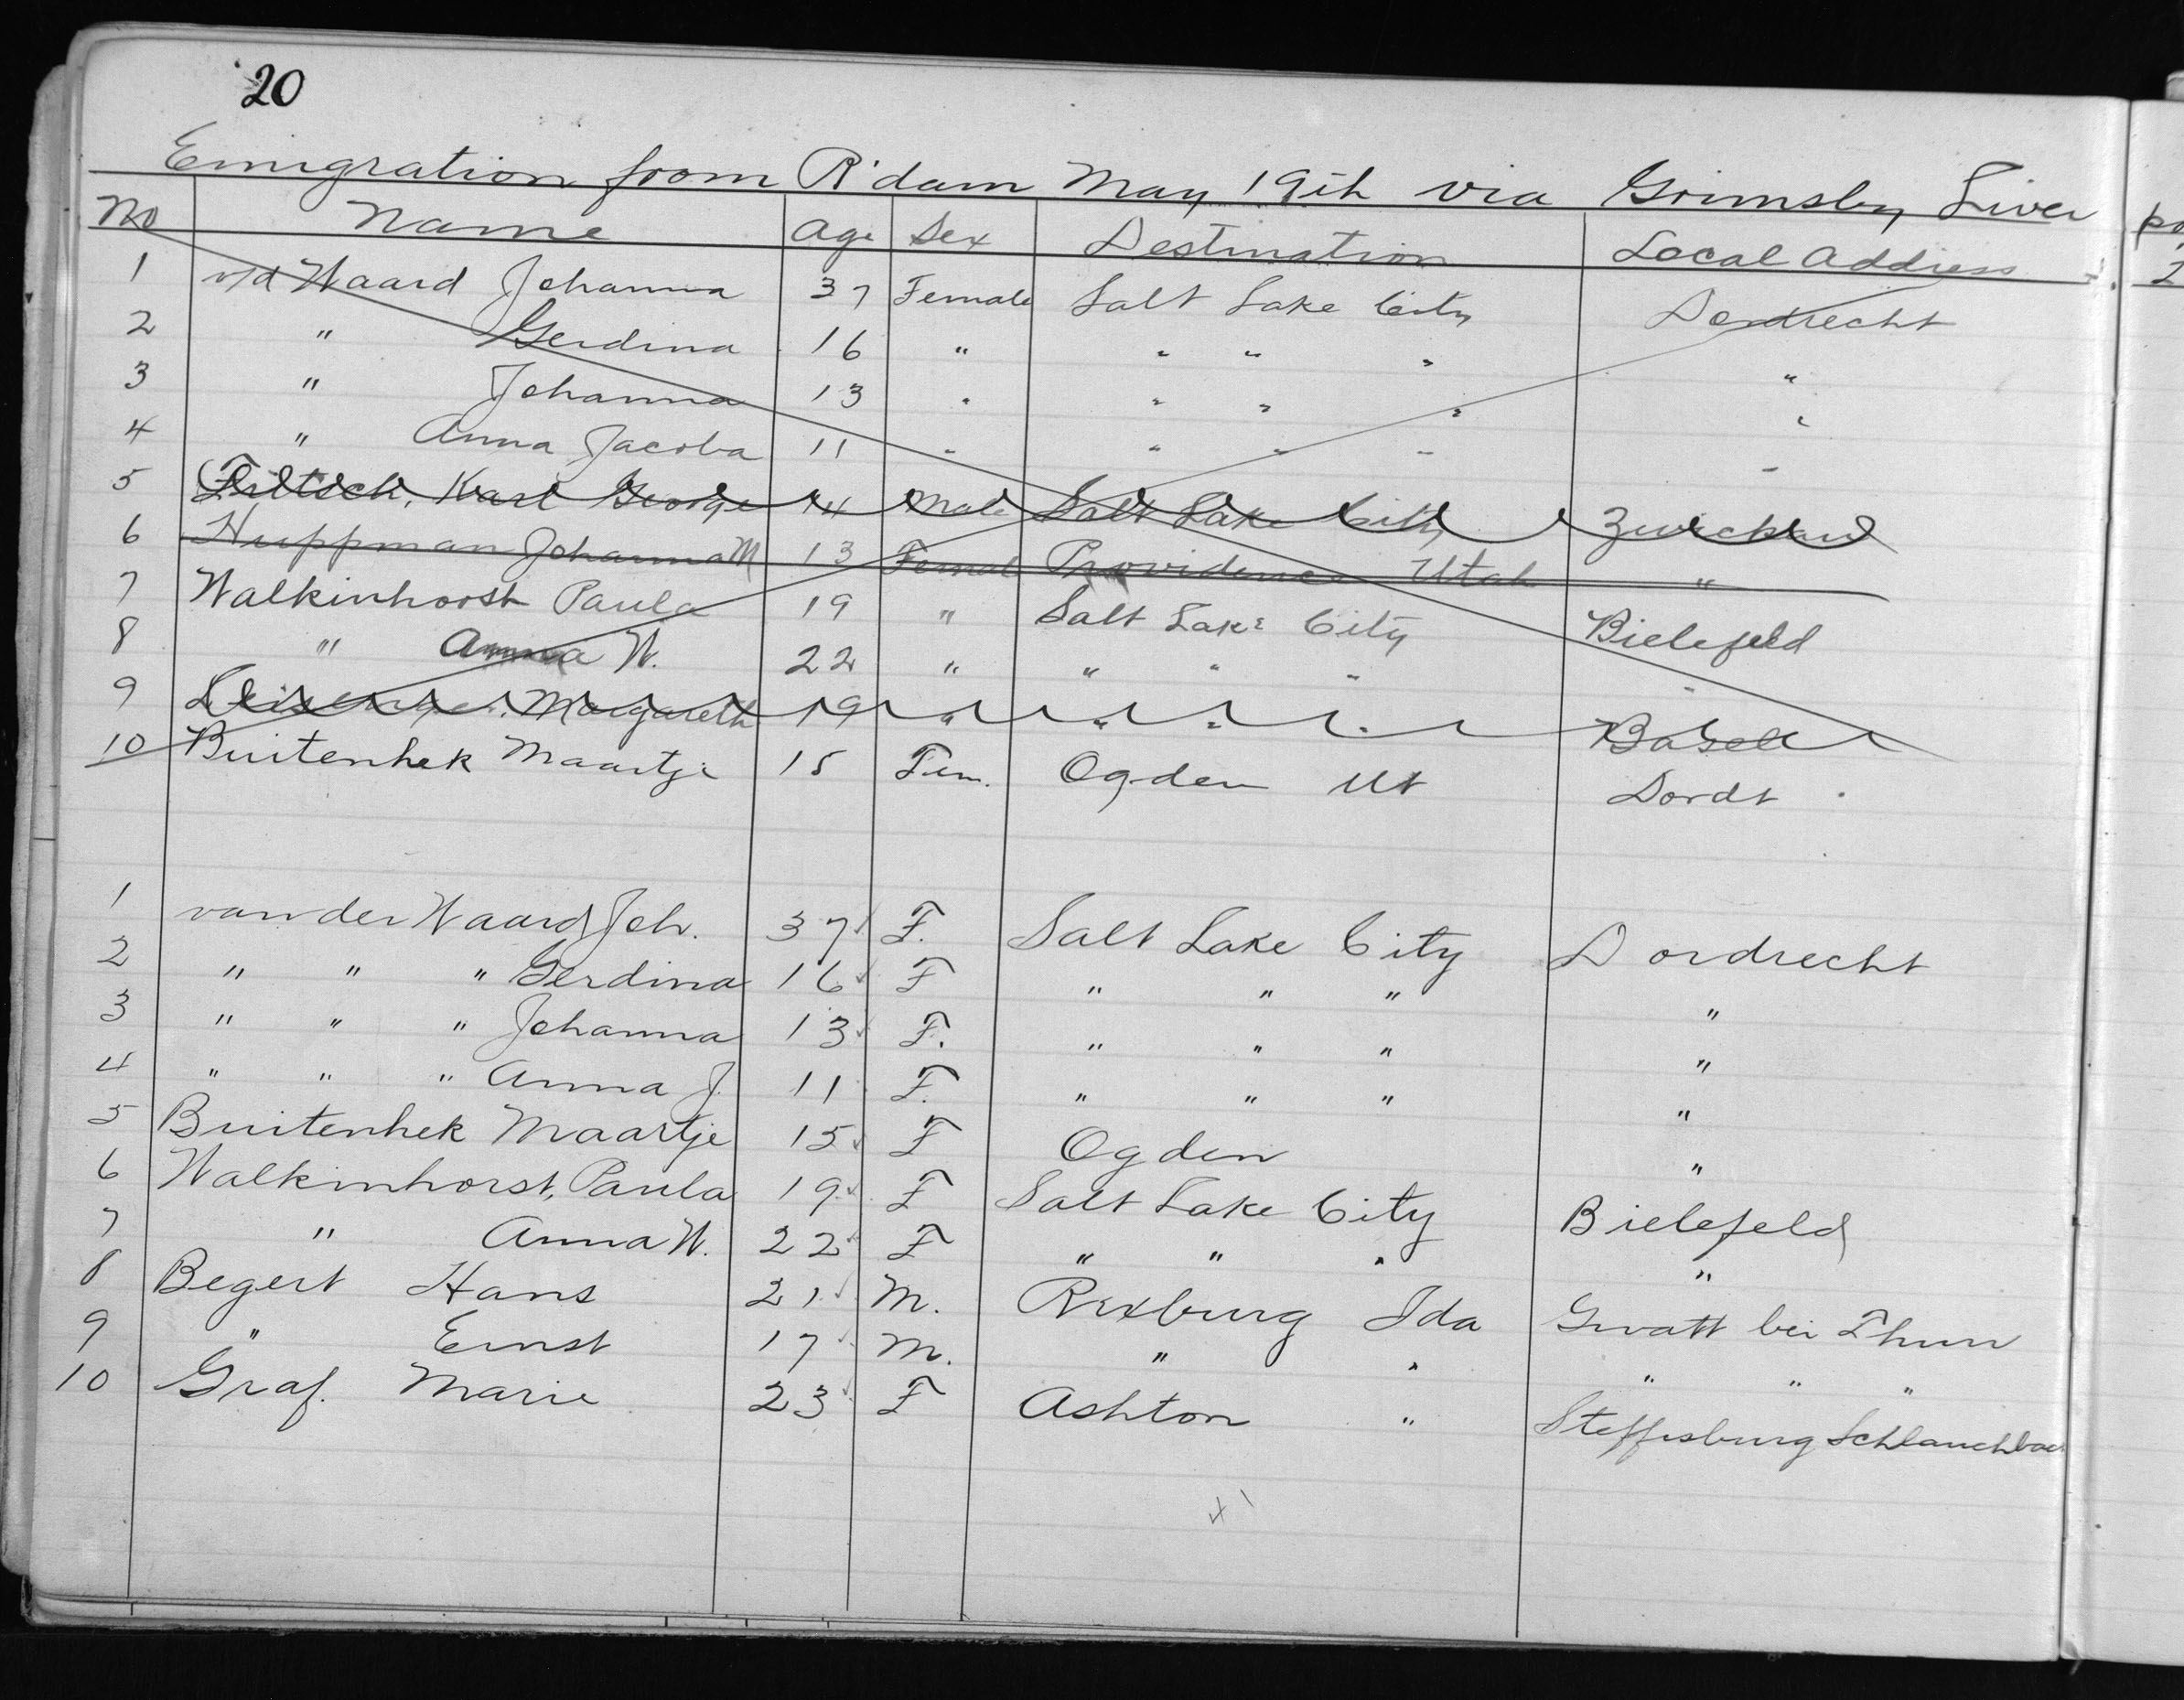 20
Emigration from R'dam May 19th via Grimsby, Liver
No Name Age Sex Destination Local Address
1 v/d Waard Johanna 37 Female Salt Lake City Dordrecht
2 " Gerdina 16 " " " " "
3 " Johanna 13 " " " " "
4 " Anna Jacoba 11 " " " " "
5 Fritsch, Karl George 14 Male Salt Lake City Zwickau
6 Huppman Johanna M 13 Female Providence Utah "
7 Walkinhorst Paula 19 " Salt Lake City Bielefeld
8 " Anna W. 22 " " " " "
9 Margareth 19 " " " " Basel
10 Buitenhek Maartje 15 Fem. Ogden Ut Dordt
1 van der Waard Joh. 37 F. Salt Lake City Dordrecht
2 " " " Gerdina 16 F " " " "
3 " " " Johanna 13 F. " " " "
4 " " " Anna J. 11 F. " " " "
5 Buitenhek Maartje 15 F Ogden "
6 Walkinhorst, Paula 19 F Salt Lake City Bielefeld
7 " Anna W. 22 F " " " "
8 Begert Hans 21 M. Rexburg Ida Gwatt bei Thun
9 " Ernst 17 M. " " " " "
10 Graf. Marie 23 F Ashton " Steffisburg Schlauchbac